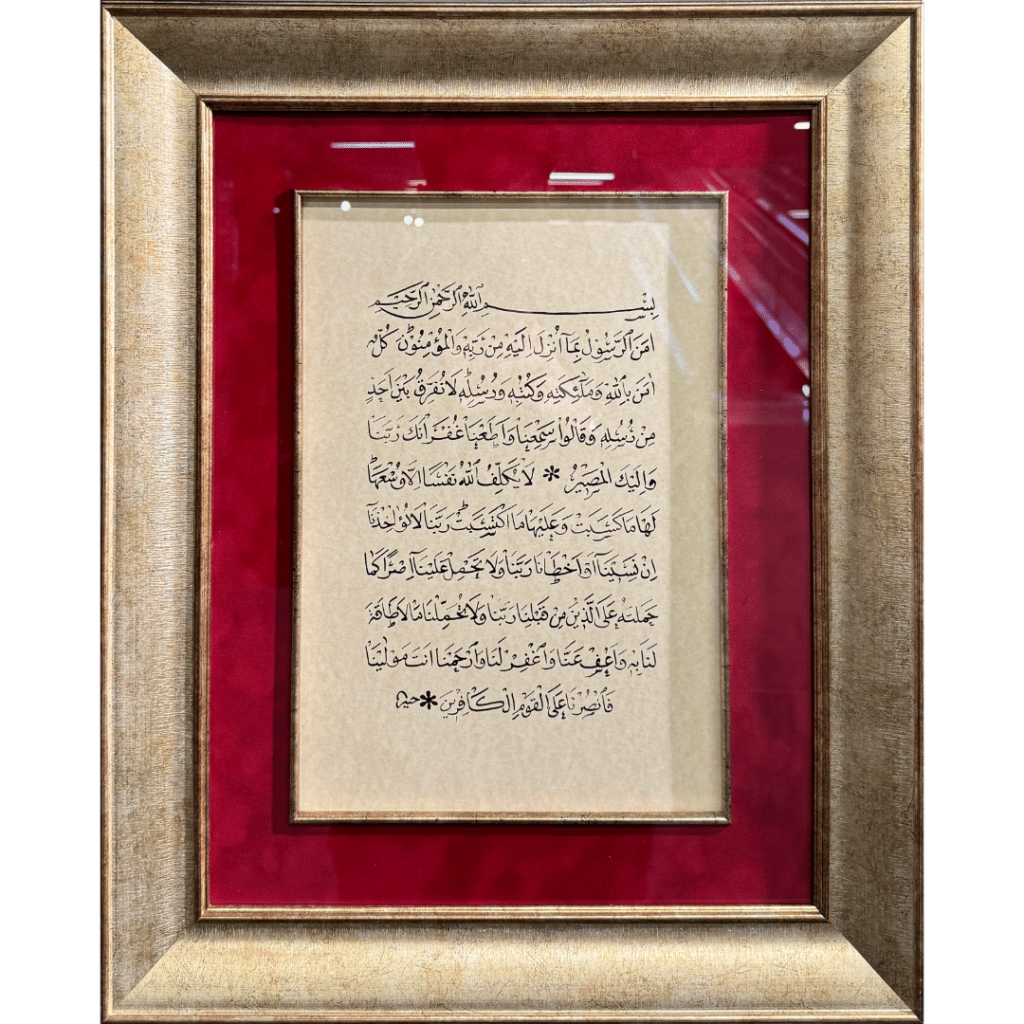 بِسْمِ اللّٰهِ الرَّحْمٰنِ الرَّحٖيمِ
اٰمَنَ الرَّسُولُ بِمَٓا اُنْزِلَ اِلَيْهِ مِنْ رَبِّهٖ وَالْمُؤْمِنُونَ كُلٌّ
اٰمَنَ بِاللّٰهِ وَمَلٰٓئِكَتِهٖ وَكُتُبِهٖ وَرُسُلِهٖ لَا نُفَرِّقُ بَيْنَ اَحَدٍ
مِنْ رُسُلِهٖ وَقَالُوا سَمِعْنَا وَاَطَعْنَا غُفْرَانَكَ رَبَّنَا
وَاِلَيْكَ الْمَصٖيرُ * لَا يُكَلِّفُ اللّٰهُ نَفْسًا اِلَّا وُسْعَهَا
لَهَا مَا كَسَبَتْ وَعَلَيْهَا مَا اكْتَسَبَتْ رَبَّنَا لَا تُؤَاخِذْنَٓا
اِنْ نَسٖينَٓا اَوْ اَخْطَاْنَا رَبَّنَا وَلَا تَحْمِلْ عَلَيْنَٓا اِصْرًا كَمَا
حَمَلْتَهُ عَلَى الَّذٖينَ مِنْ قَبْلِنَا رَبَّنَا وَلَا تُحَمِّلْنَا مَا لَا طَاقَةَ
لَنَا بِهٖ وَاعْفُ عَنَّا وَاغْفِرْ لَنَا وَارْحَمْنَا اَنْتَ مَوْلٰينَا
فَانْصُرْنَا عَلَى الْقَوْمِ الْكَافِرٖينَ *